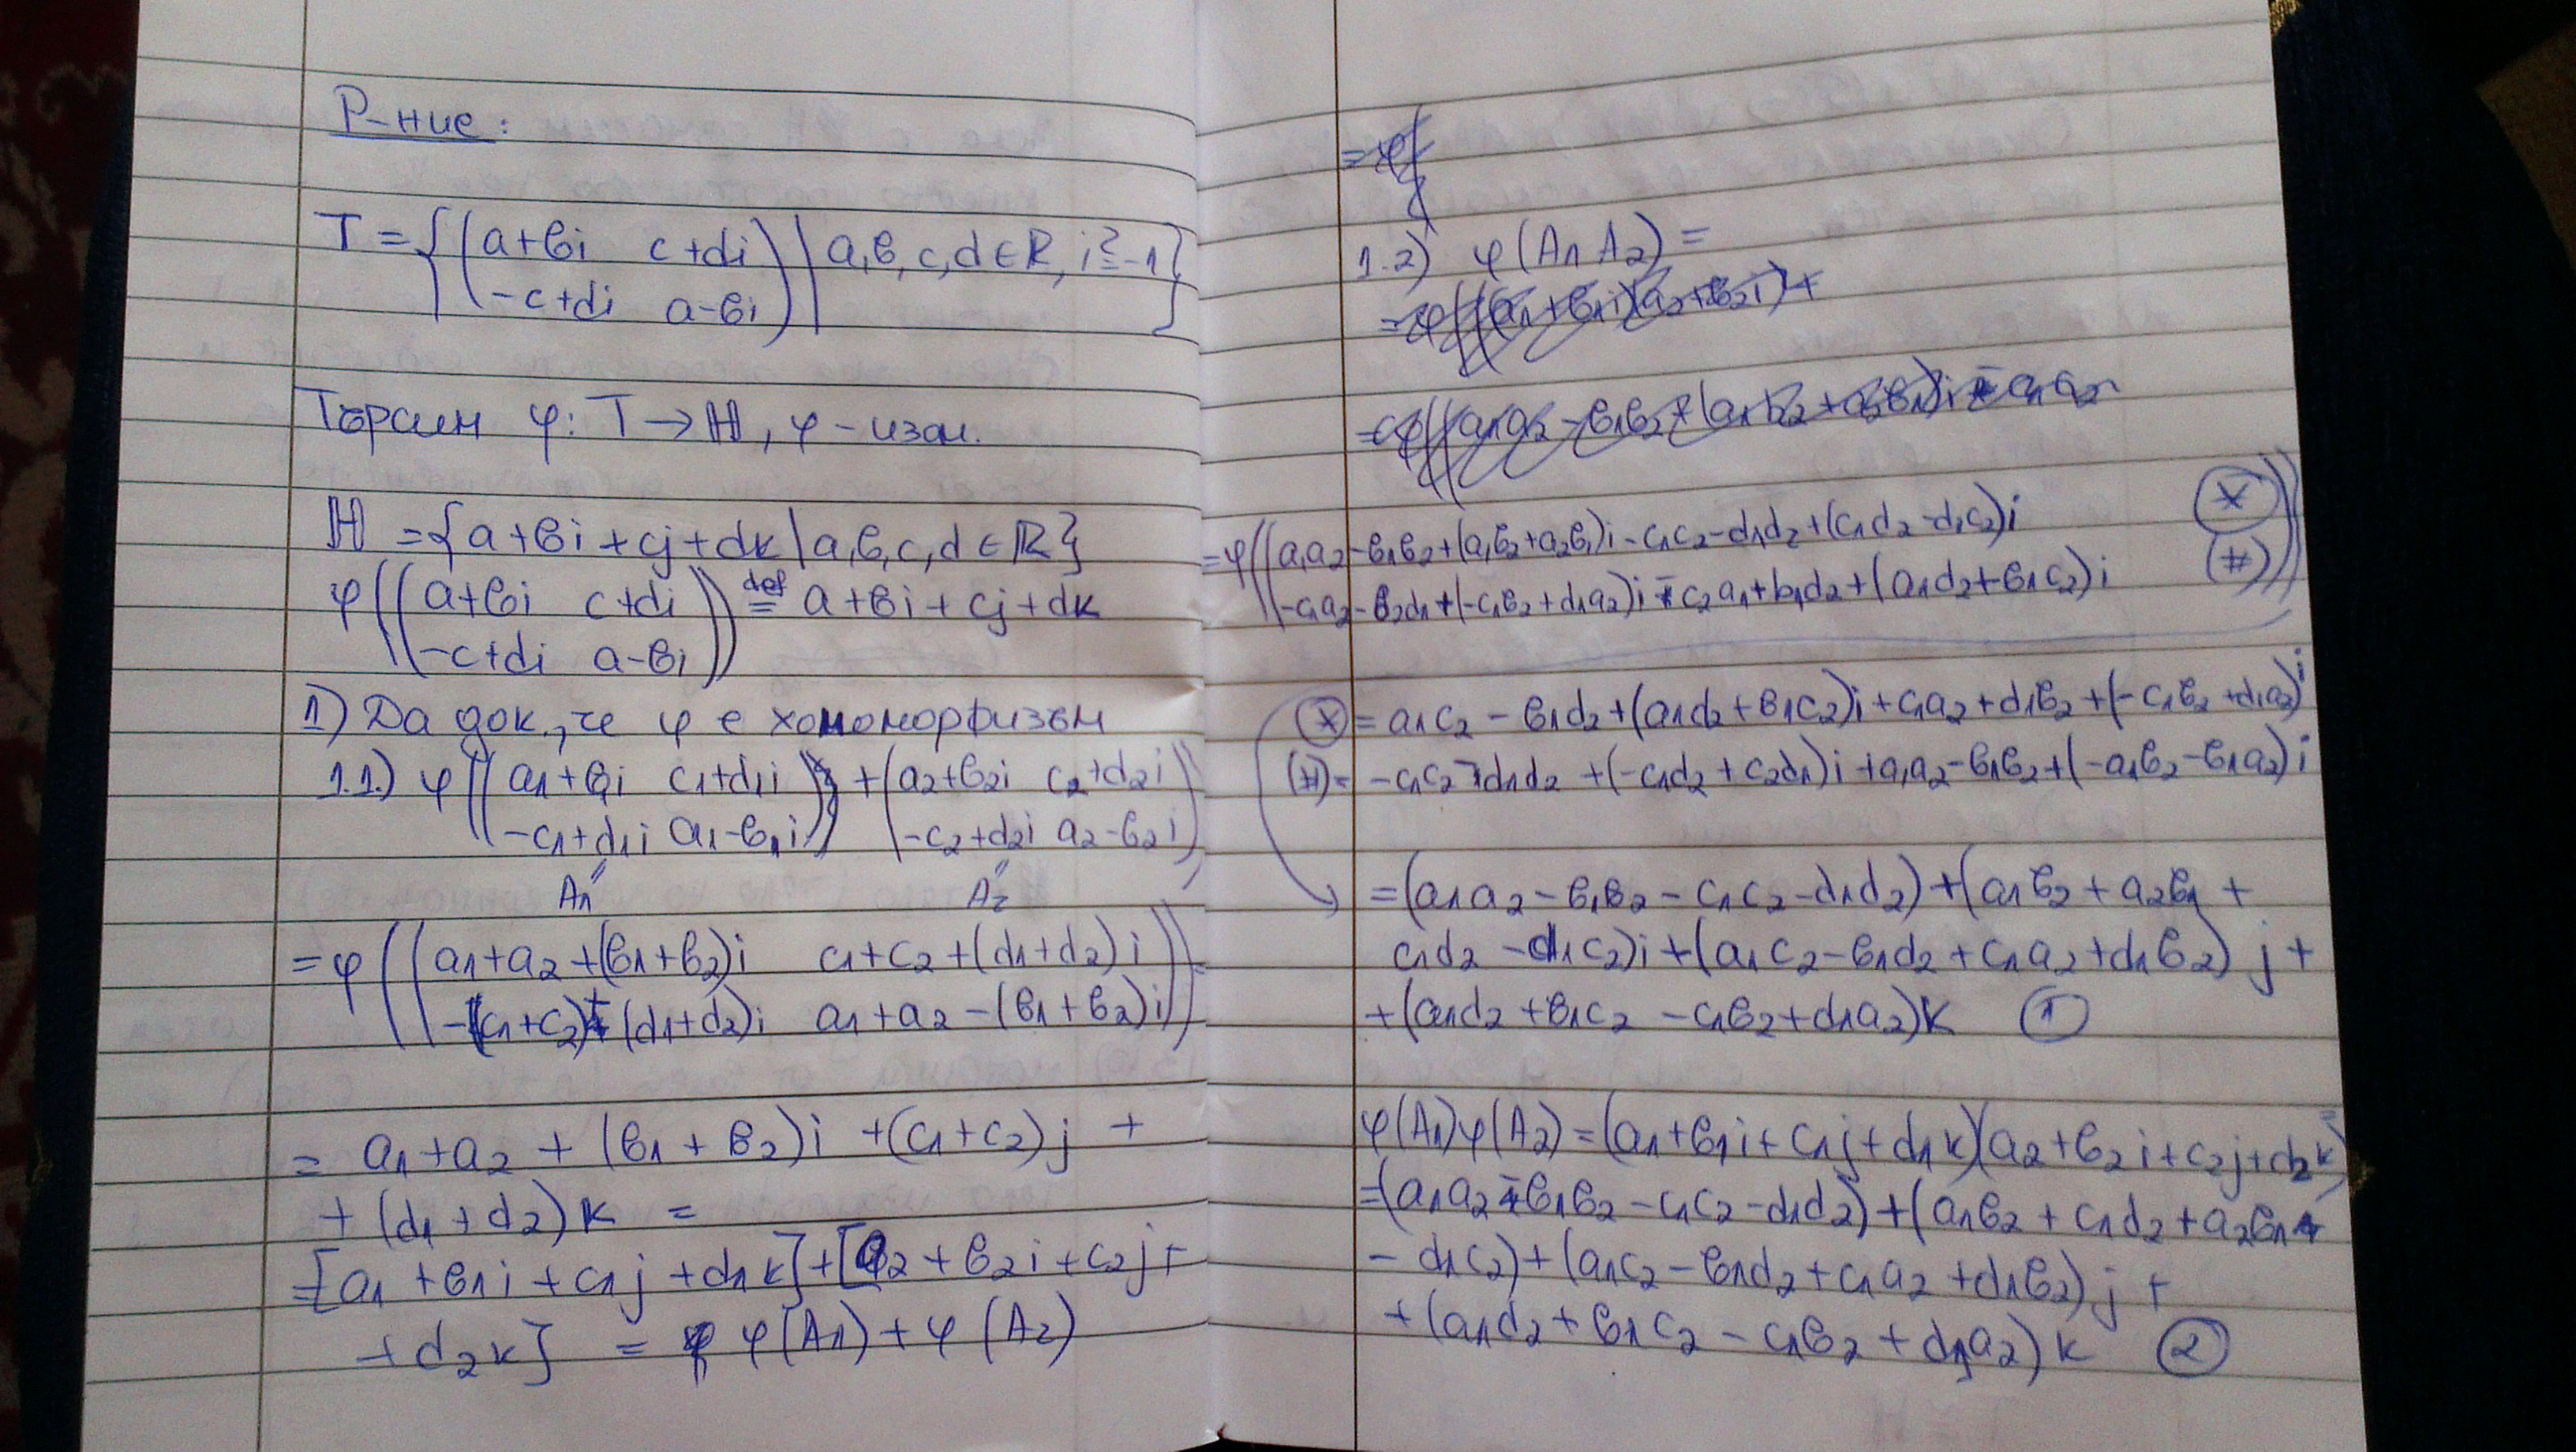 Р-ние:
T = {(a+вi c+di) | a,в,c,d ∈ ℝ, i²=-1}
(-c+di a-вi)
Търсим φ: T → ℍ, φ - изом.
ℍ = {a+вi+cj+dk | a,в,c,d ∈ ℝ}
φ((a+вi c+di)) def= a+вi+cj+dk
((-c+di a-вi))
1) Да док., че φ е хомоморфизъм
1.1.) φ((a₁+в₁i c₁+d₁i) + (a₂+в₂i c₂+d₂i)
((-c₁+d₁i a₁-в₁i) (-c₂+d₂i a₂-в₂i)
A₁ A₂
=φ((a₁+a₂+(в₁+в₂)i c₁+c₂+(d₁+d₂)i)) =
((-(c₁+c₂)+(d₁+d₂)i a₁+a₂-(в₁+в₂)i))
= a₁+a₂ + (в₁+в₂)i +(c₁+c₂)j +
+ (d₁+d₂)k =
=[a₁+в₁i+c₁j+d₁k]+[a₂+в₂i+c₂j+
+d₂k] = φ(A₁)+φ(A₂)
1.2) φ(A₁A₂) =
=φ((a₁a₂-в₁в₂+(a₁в₂+a₂в₁)i-c₁c₂-d₁d₂+(c₁d₂-d₁c₂)i (*)
((-c₁a₂-в₂d₁+(-c₁в₂+d₁a₂)i-c₂a₁+b₁d₂+(a₁d₂+в₁c₂)i (#)))
(*)= a₁c₂-в₁d₂+(a₁d₂+в₁c₂)i+c₁a₂+d₁в₂+(-c₁в₂+d₁a₂)i
(#)= -c₁c₂-d₁d₂+(-c₁d₂+c₂d₁)i+a₁a₂-в₁в₂+(-a₁в₂-в₁a₂)i
=(a₁a₂-в₁в₂-c₁c₂-d₁d₂)+(a₁в₂+a₂в₁+
c₁d₂-d₁c₂)i+(a₁c₂-в₁d₂+c₁a₂+d₁в₂)j+
+(a₁d₂+в₁c₂-c₁в₂+d₁a₂)k (1)
φ(A₁)φ(A₂)=(a₁+в₁i+c₁j+d₁k)(a₂+в₂i+c₂j+d₂k)=
=(a₁a₂-в₁в₂-c₁c₂-d₁d₂)+(a₁в₂+c₁d₂+a₂в₁
-d₁c₂)+(a₁c₂-в₁d₂+c₁a₂+d₁в₂)j+
+(a₁d₂+в₁c₂-c₁в₂+d₁a₂)k (2)